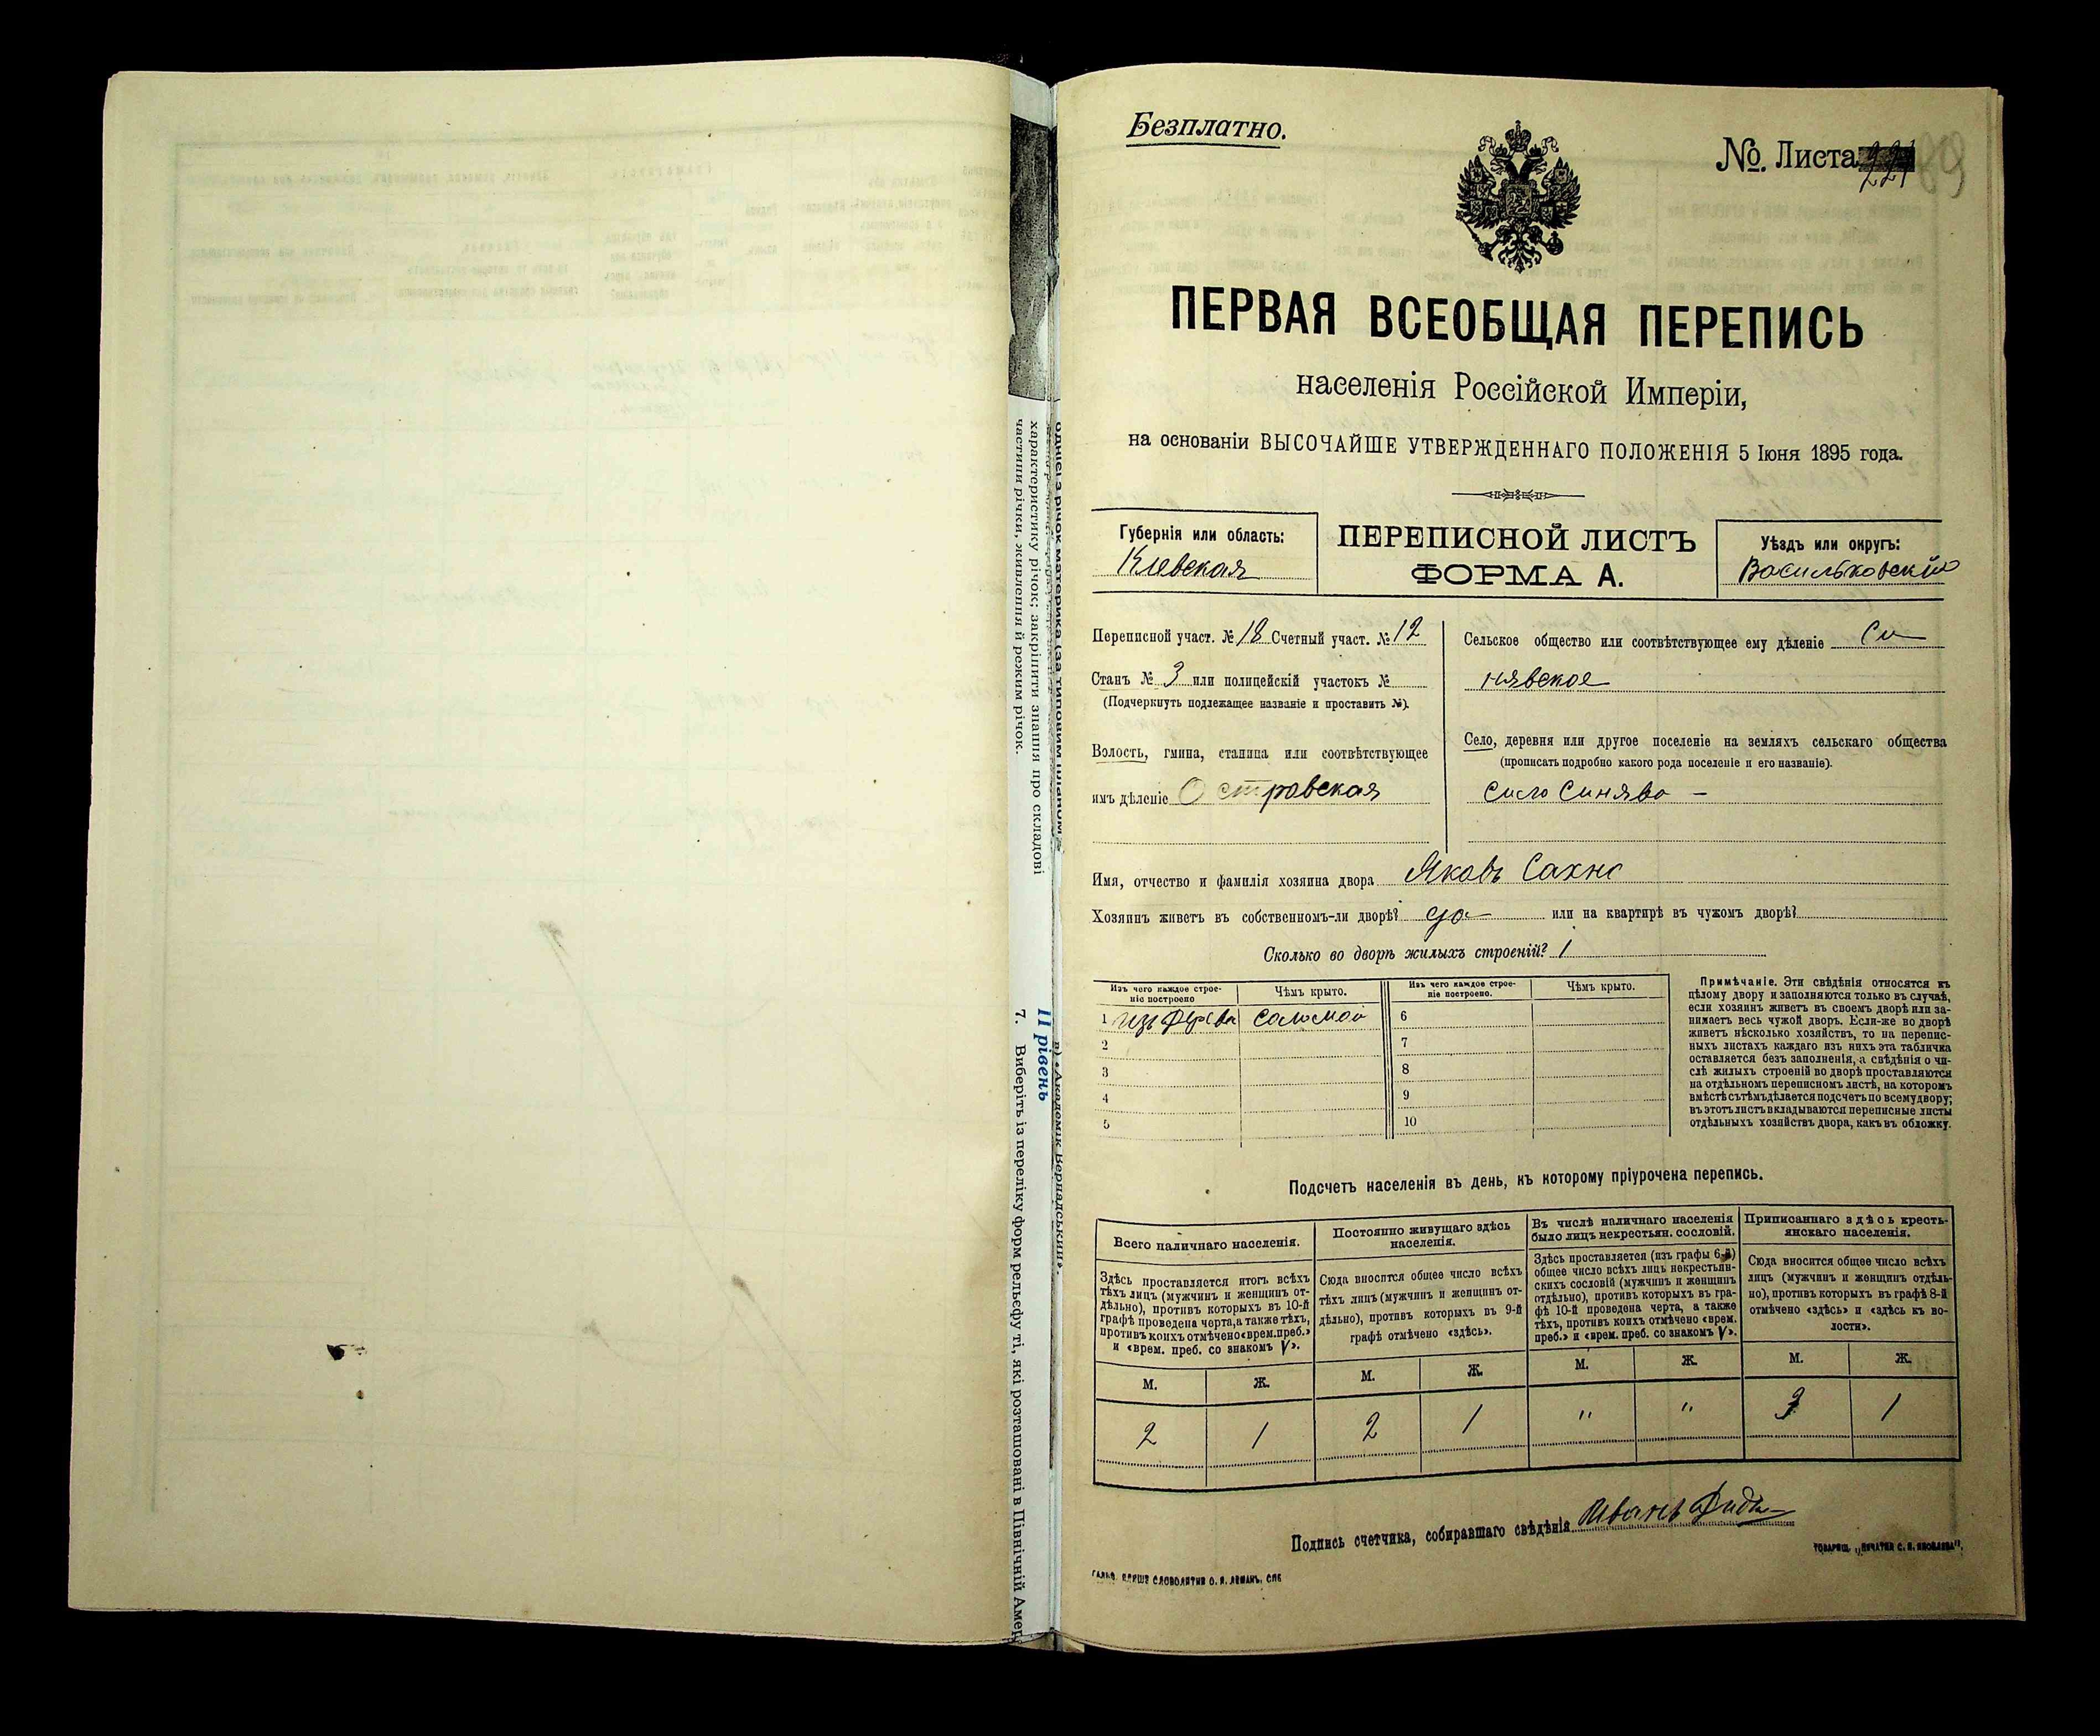 Безплатно.
№. Листа 221
89
ПЕРВАЯ ВСЕОБЩАЯ ПЕРЕПИСЬ
населенія Россійской Имперіи,
на основаніи ВЫСОЧАЙШЕ УТВЕРЖДЕННАГО ПОЛОЖЕНІЯ 5 Іюня 1895 года.
Губернія или область:
Кіевская
ПЕРЕПИСНОЙ ЛИСТЪ
ФОРМА А.
Уѣздъ или округъ:
Васильковскій
Переписной участ. № 18 Счетный участ. № 12
Станъ № 3 или полицейскій участокъ №
(Подчеркнуть подлежащее названіе и проставить №).
Волость, гмина, станица или соотвѣтствующее
имъ дѣленіе Островская
Сельское общество или соотвѣтствующее ему дѣленіе Си
нявское
Село, деревня или другое поселеніе на земляхъ сельскаго общества
(прописать подробно какого рода поселеніе и его названіе).
село Синява –
Имя, отчество и фамилія хозяина двора Яковъ Сахно
Хозяинъ живетъ въ собственномъ-ли дворѣ? да или на квартирѣ въ чужомъ дворѣ?
Сколько во дворѣ жилыхъ строеній? 1
Изъ чего каждое строе-
ніе построено
Чѣмъ крыто.
Изъ чего каждое строе-
ніе построено.
Чѣмъ крыто.
1 изъ дерева соломой 6
2 7
3 8
4 9
5 10
Примѣчаніе. Эти свѣдѣнія относятся къ
цѣлому двору и заполняются только въ случаѣ,
если хозяинъ живетъ въ своемъ дворѣ или за-
нимаетъ весь чужой дворъ. Если-же во дворѣ
живетъ нѣсколько хозяйствъ, то на перепис-
ныхъ листахъ каждаго изъ нихъ эта табличка
оставляется безъ заполненія, а свѣдѣнія о чи-
слѣ жилыхъ строеній во дворѣ проставляются
на отдѣльномъ переписномъ листѣ, на которомъ
вмѣстѣ съ тѣмъ дѣлается подсчетъ по всему двору;
въ этотъ листъ вкладываются переписные листы
отдѣльныхъ хозяйствъ двора, какъ въ обложку.
Подсчетъ населенія въ день, къ которому пріурочена перепись.
Всего наличнаго населенія.
Здѣсь проставляется итогъ всѣхъ
тѣхъ лицъ (мужчинъ и женщинъ от-
дѣльно), противъ которыхъ въ 10-й
графѣ проведена черта, а также тѣхъ,
противъ коихъ отмѣчено «врем. преб.»
и «врем. преб. со знакомъ V».
М. Ж.
2 1
Постоянно живущаго здѣсь
населенія.
Сюда вносится общее число всѣхъ
тѣхъ лицъ (мужчинъ и женщинъ от-
дѣльно), противъ которыхъ въ 9-й
графѣ отмѣчено «здѣсь».
М. Ж.
2 1
Въ числѣ наличнаго населенія
было лицъ некрестьян. сословій.
Здѣсь проставляется (изъ графы 6-й)
общее число всѣхъ лицъ некрестьян-
скихъ сословій (мужчинъ и женщинъ
отдѣльно), противъ которыхъ въ гра-
фѣ 10-й проведена черта, а также
тѣхъ, противъ коихъ отмѣчено «врем.
преб.» и «врем. преб. со знакомъ V».
М. Ж.
" "
Приписаннаго здѣсь кресть-
янскаго населенія.
Сюда вносится общее число всѣхъ
лицъ (мужчинъ и женщинъ отдѣль-
но), противъ которыхъ въ графѣ 8-й
отмѣчено «здѣсь» и «здѣсь къ во-
лости».
М. Ж.
3 1
Подпись счетчика, собиравшаго свѣдѣнія Иванъ
ТОВАРИЩ. „ПЕЧАТНЯ С. П. ЯКОВЛЕВА".
СЛОВОЛИТНИ О. И. ЛЕМАНЪ, СПБ
однієї з річок материка (за типовим планом
характеристику річок; закріпити знання про складові
частини річки, живлення й режим річок.
в) «Академік Вернадський».
ІІ рівень
7. Виберіть із переліку форм рельєфу ті, які розташовані в Північній Амер